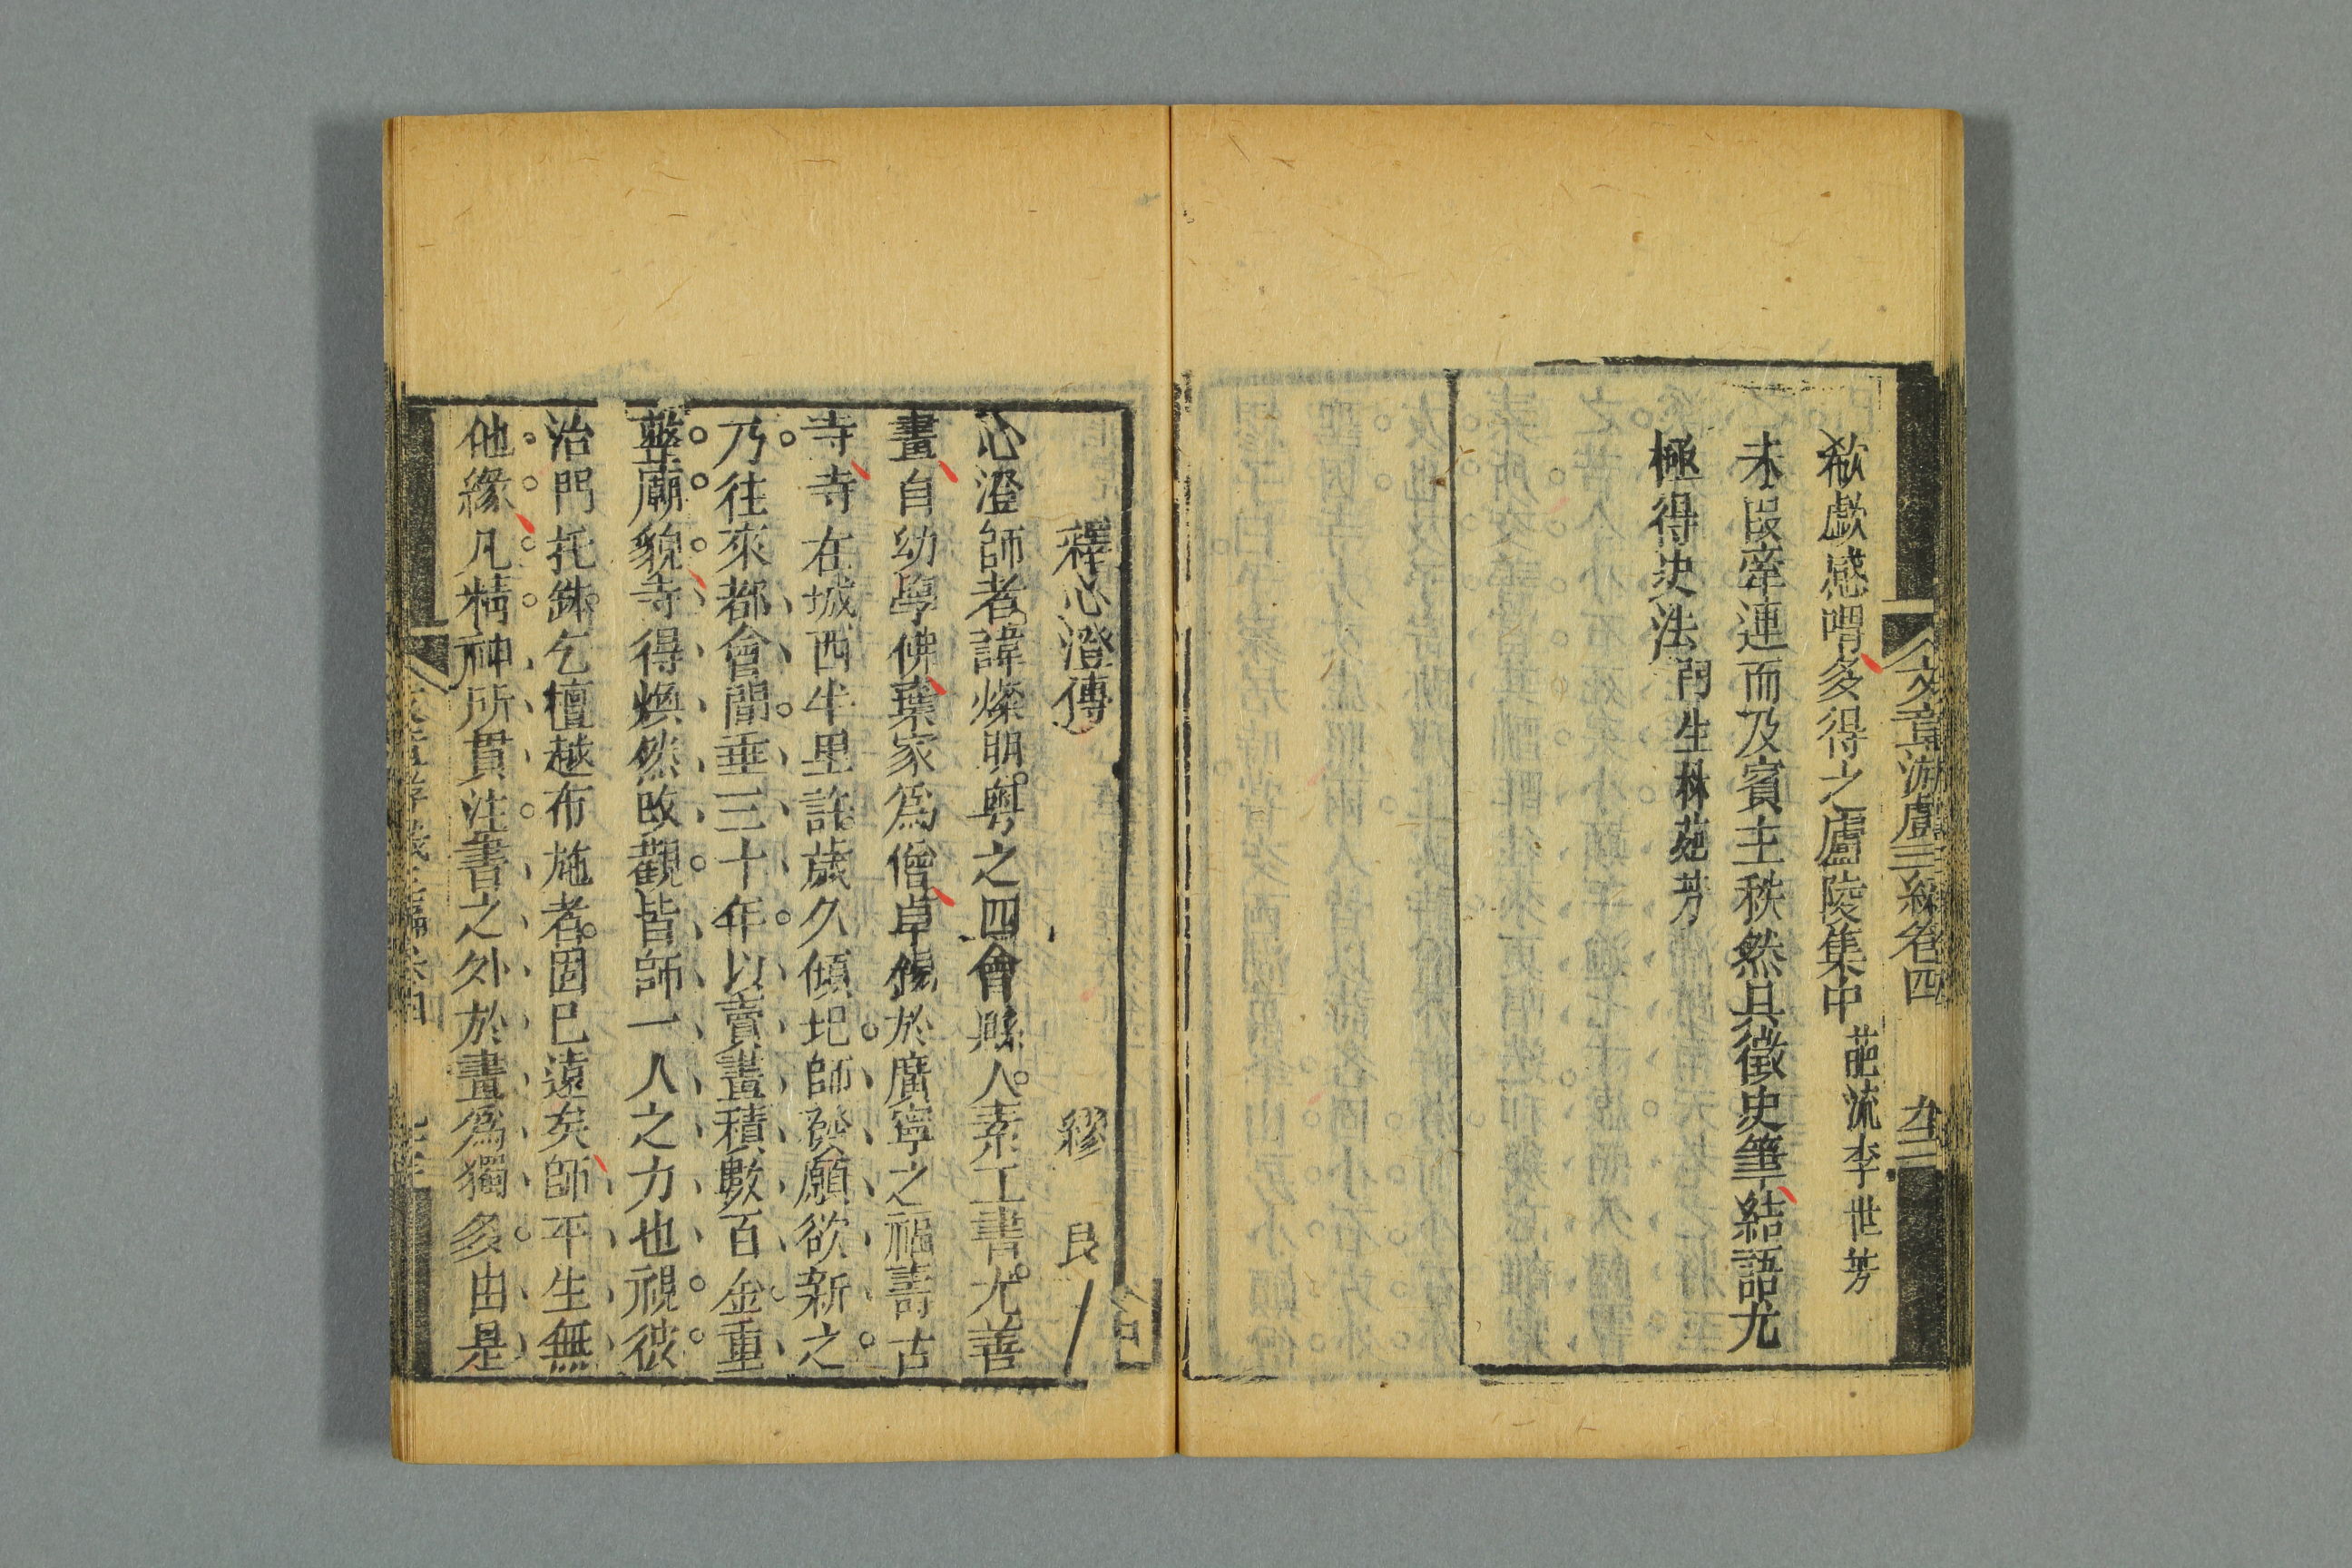 文章游戲三編卷四
欷歔感喟多得之廬陵集中 葩流李世芳
末段牽連而及賓主秩然具徵史筆結語尤
極得史法 門生林菀芳
釋心澄傳 繆艮
心澄師者諱燦明粤之四會縣人素工書尤善
畫自幼學佛棄家爲僧卓錫於廣寧之福壽古
寺寺在城西半里許歲久傾圮師發願欲新之
乃往來都會間垂三十年以賣畫積數百金重
整廟貌寺得煥然改觀皆師一人之力也視彼
治門托鉢乞檀越布施者固已遠矣師平生無
他緣凡精神所貫注書之外於畫爲獨多由是